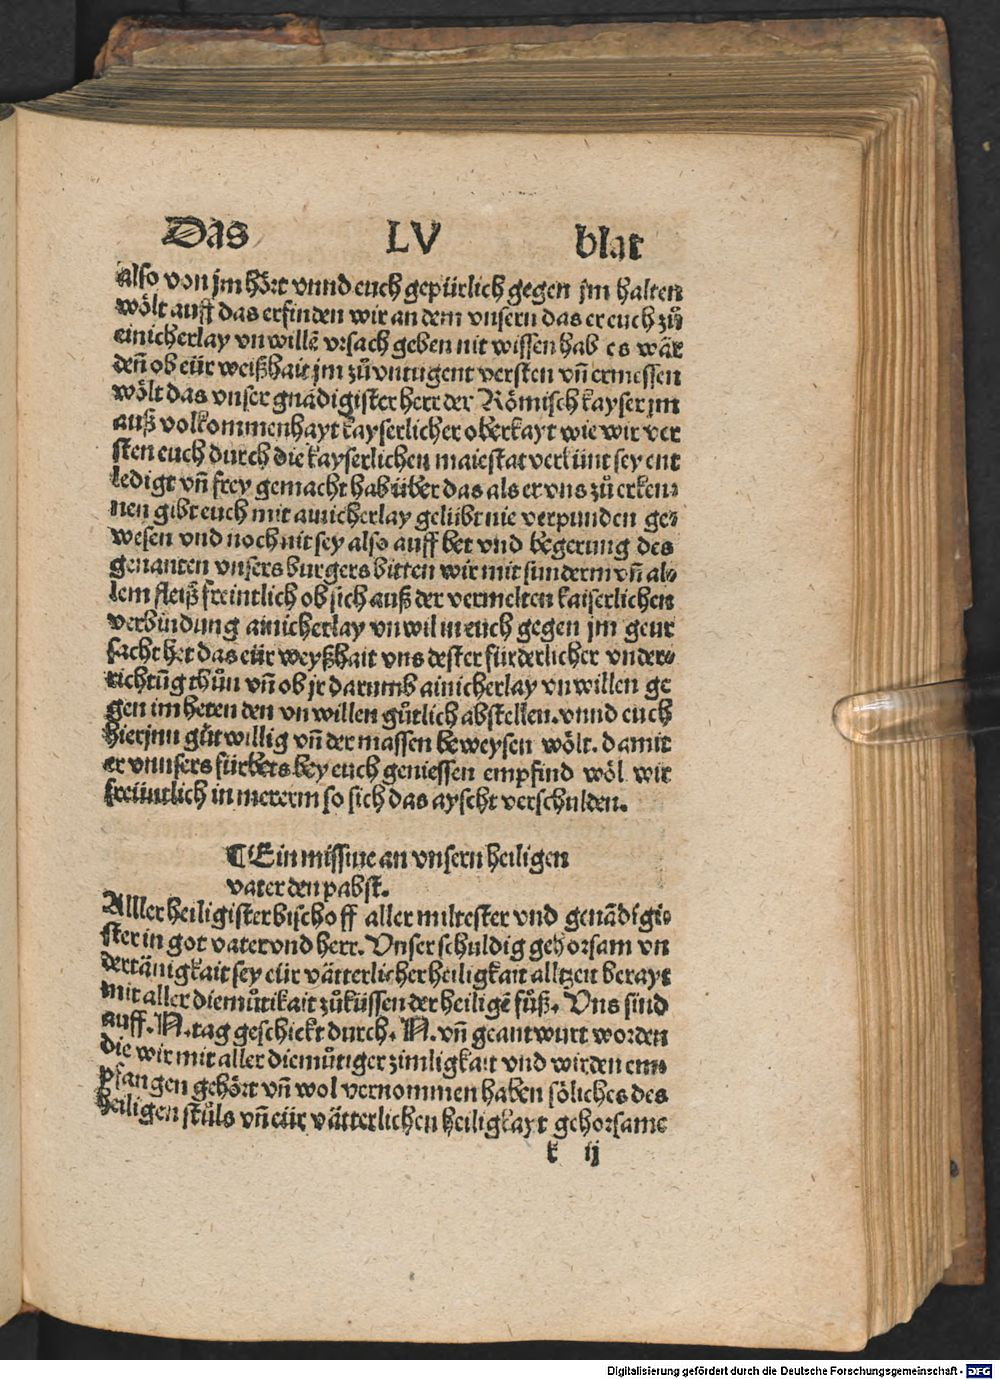 Das LV blat
also von jm hört vnnd euch gepürlich gegen jm halten
wölt auff das erfinden wir an dem vnsern das er euch zů
einicherlay vnwillē vrsach geben nit wissen hab es wär
deñ ob eür weißhait jm zů vntugent versten vñ ermessen
wölt das vnser gnädigister herr der Römisch kayser jm
auß volkommenhayt kayserlicher oberkayt wie wir ver
sten euch durch die kayserlichen maiestat verkünt sey ent
ledigt vñ frey gemacht hab über das als er vns zů erken⸗
nen gibt euch mit ainicherlay gelübt nie verpunden ge⸗
wesen vnd noch nit sey also auff bet vnd begerung des
genanten vnsers burgers bitten wir mit sunderm vñ al⸗
lem fleiß freintlich ob sich auß der vermelten kaiserlichen
verbindung ainicherlay vnwil in euch gegen jm geur
sacht het das eür weyßhait vns dester fürderlicher vnder⸗
richtūg thůn vñ ob jr darumb ainicherlay vnwillen ge
gen im heten den vnwillen gůtlich abstellen. vnnd euch
hierjnn gůtwillig vñ der massen beweysen wölt. damit
er vnnsers fürbets bey euch geniessen empfind wöl wir
freüntlich in mererm so sich das ayscht verschulden.
¶ Ein missiue an vnsern heiligen
vater den pabst.
Alller heiligister bischoff aller miltester vnd genädigi⸗
ster in got vater vnd herr. Vnser schuldig gehorsam vn
dertänigkait sey eür vätterlicher heiligkait alltzeit berayt
mit aller diemůtikait zů küssen der heiligē fůß. Vns sind
auff. N. tag geschickt durch. N. vñ geantwurt worden
die wir mit aller diemůtiger zimligkait vnd wirden em⸗
pfangen gehört vñ wol vernommen haben söliches des
heiligen stůls vñ eür vätterlichen heiligkayt gehorsame
k ij
Digitalisierung gefördert durch die Deutsche Forschungsgemeinschaft - DFG